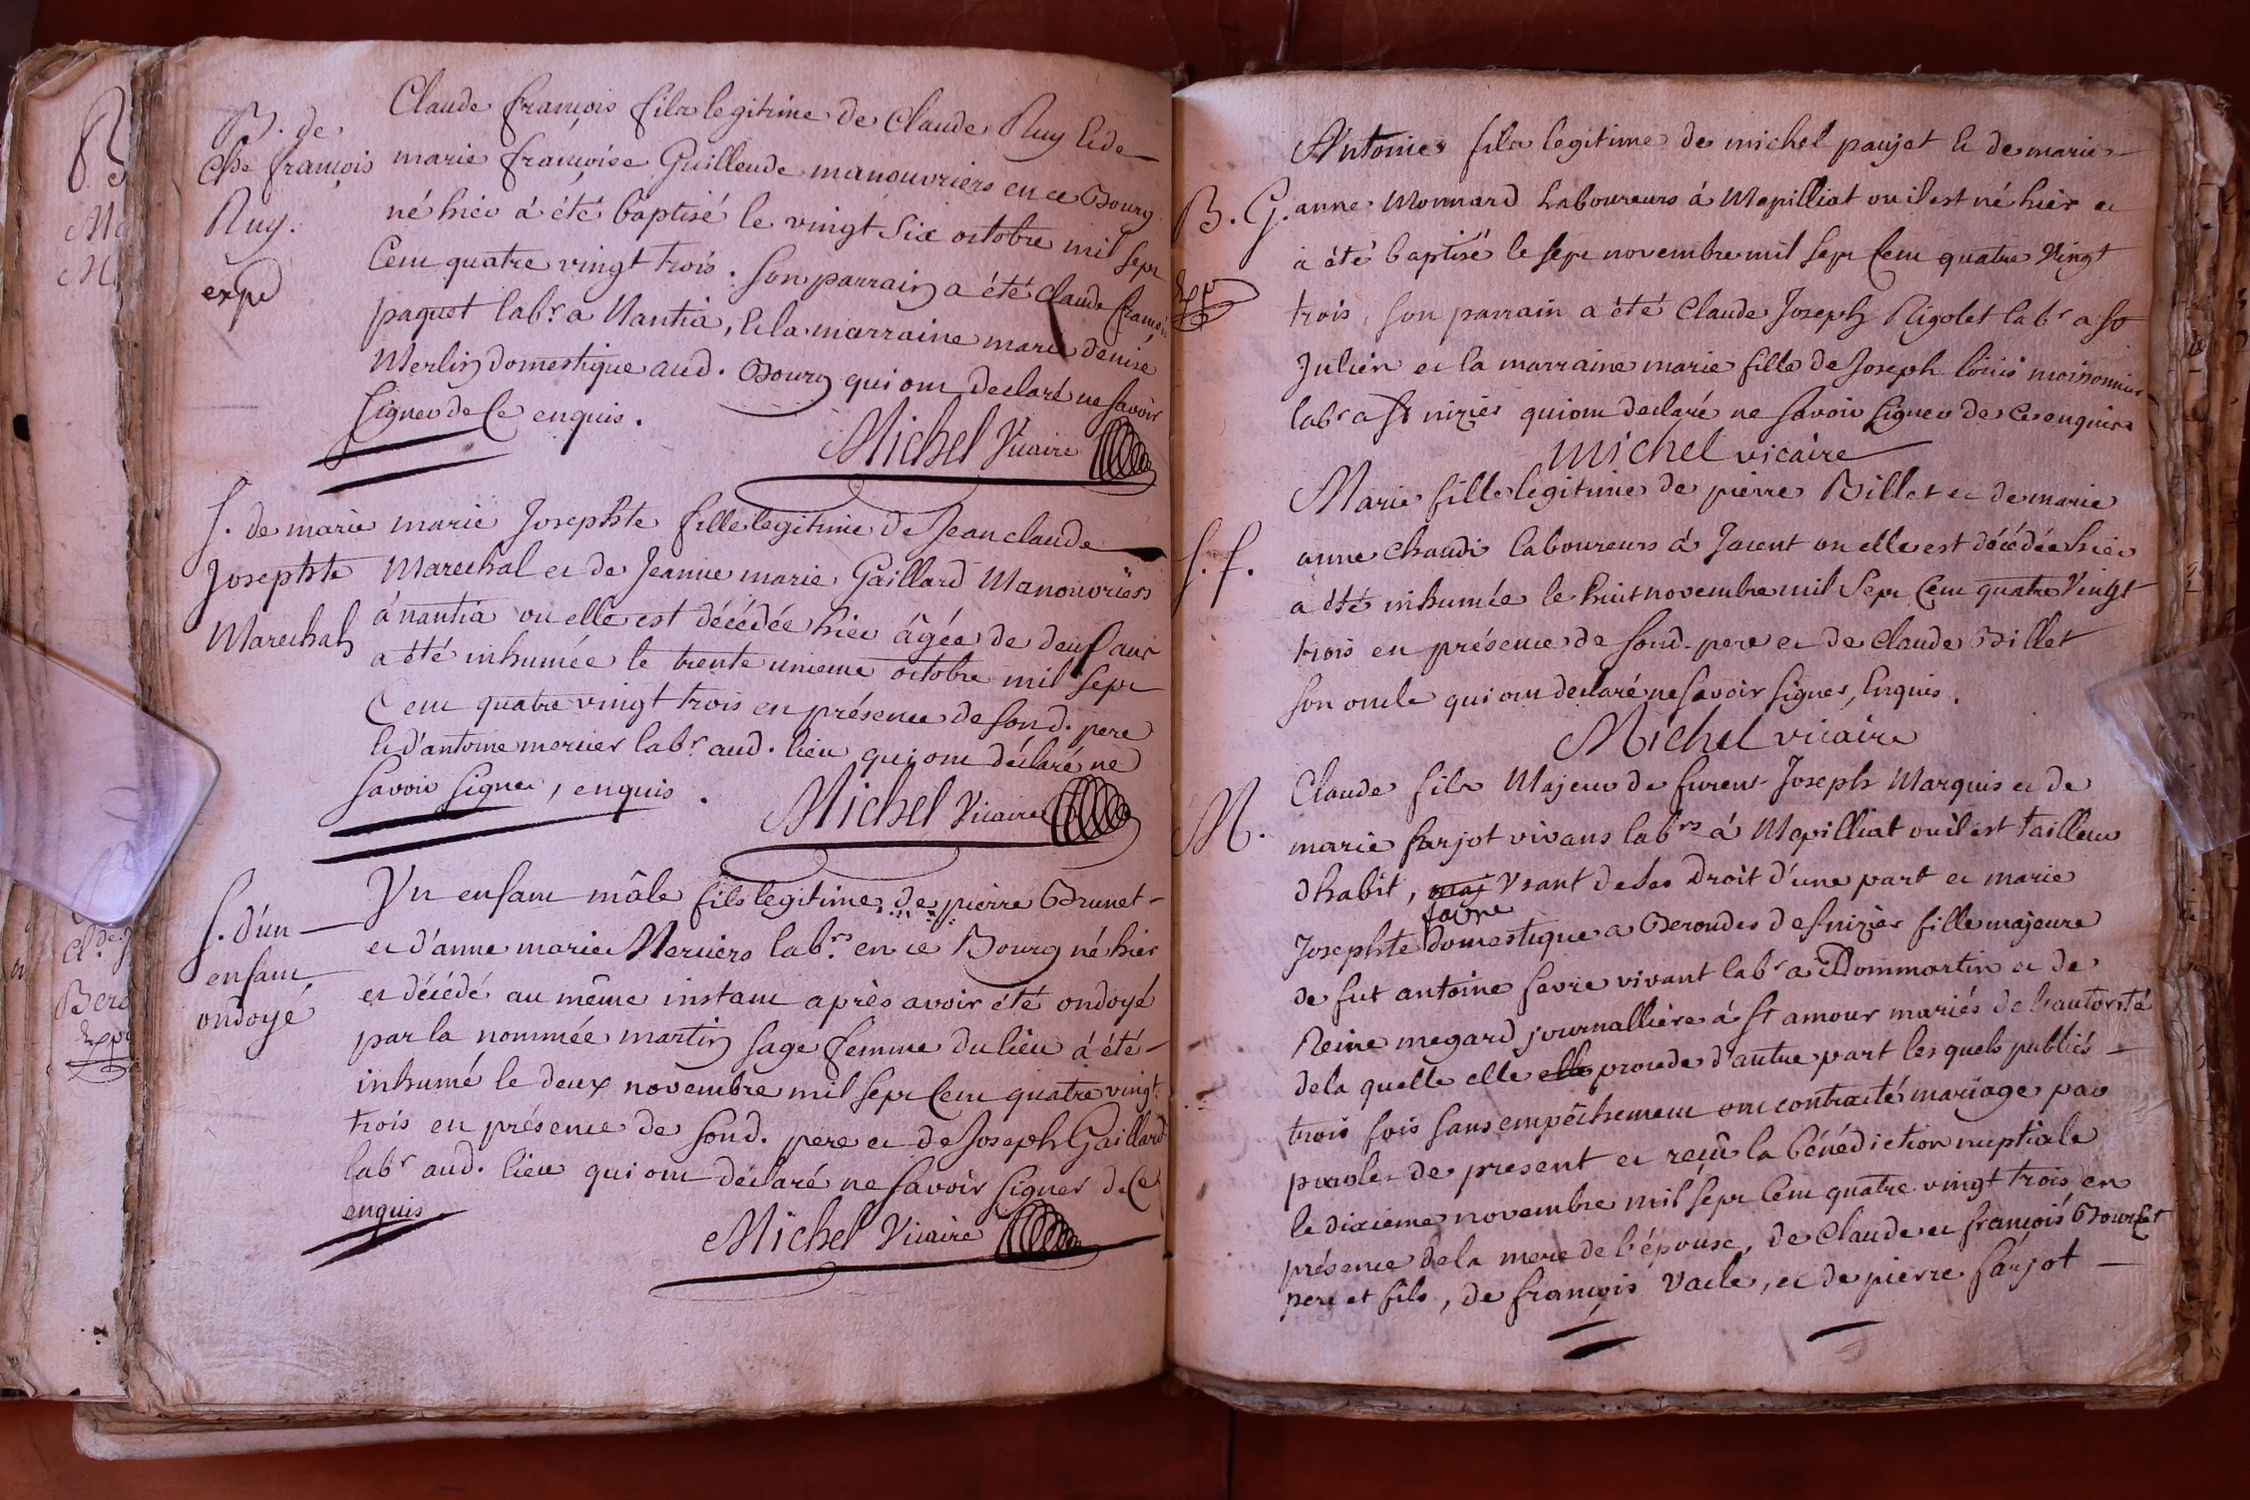 B. de
Cde françois
Ruy.
expd
Claude françois fils legitime de Claude Ruy & de
marie françoise Guilleude manouvriers en ce Bourg
né hier a été baptisé le vingt six octobre mil sept
Cent quatre vingt trois. son parrain a été Claude françois
paquet labr. a Nantia, & la marraine marie denise
Merlin domestique aud. Bourg qui ont declaré ne savoir
signer de ce enquis.
Michel Vicaire
S. de marie
Josephte
Marechal
marie Josephte fille legitime de Jean claude
Marechal et de Jeanne marie Gaillard Manouvriers
à nantia ou elle est décédée hier âgée de deux ans
a été inhumée le trente unieme octobre mil sept
Cent quatre vingt trois en présence de sond. pere
& d'antoine mercier labr. aud. lieu qui ont déclaré ne
savoir signer, enquis.
Michel Vicaire
S. d'un
enfant
ondoyé
Un enfant mâle fils legitime de pierre Brunet
et d'anne marie Merciers labrs. en ce Bourg né hier
et décédé au même instant après avoir été ondoyé
par la nommée martin sage femme du lieu a été
inhumé le deux novembre mil sept Cent quatre vingt
trois en présence de sond. pere et de Joseph Gaillard
labr aud. lieu qui ont déclaré ne savoir signer de ce
enquis.
Michel Vicaire
B. G.
Antoine fils legitime de michel paujet & de marie
anne Monnard Laboureurs á Mepilliat ou il est né hier et
a été baptisé le sept novembre mil sept Cent quatre Vingt
trois, son parrain a été Claude Joseph Rigolet labr a st
Julien et la marraine marie fille de Joseph loüis moissonnier
labr a st nizier qui ont declaré ne savoir signer de ce enquis
michel vicaire
S. f.
Marie fille legitime de pierre Billet et de marie
anne Chaudi laboureurs á Jasent ou elle est décédée hier
a été inhumée le huit novembre mil Sept Cent quatre Vingt
trois en présence de sond. pere et de Claude Billet
son oncle qui ont declaré ne savoir signer, Enquis.
Michel vicaire
M.
Claude fils Majeur de furent Joseph Marquis et de
marie farjot vivans labrs á Mepilliat ou il est tailleur
d habit, maj Usant de ses Droit d'une part et marie
favre
Josephte domestique a Beroudes de st nizier fille majeure
de fut antoine favre vivant labr a Dommartin et de
Reine megard journalliere á st amour mariés de l'autorité
de la quelle elle elle procede d'autre part les quels publiés
trois fois sans empêchement ont contracté mariage par
paroles de present et reçû la bénédiction nuptiale
le dixieme novembre mil sept Cent quatre vingt trois en
présence de la mere de l'épouse, de Claude et françois Bourcet
pere et fils, de françois Vacle, et de pierre farjot